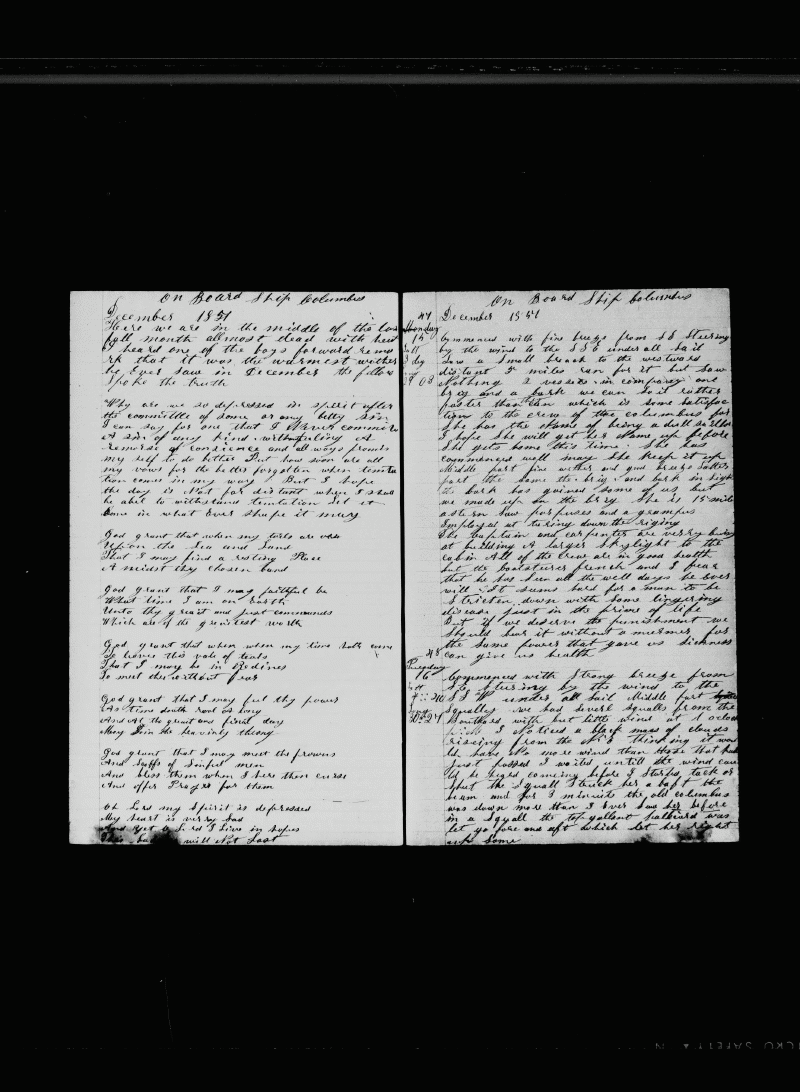 On Board Ship Columbus
December 1851
Here we are in the middle of the
fall month allmost dead with heat
I heard one of the boys forward
that it was the warmest wether
he Ever saw in December the fellow
Spoke the truth
Why are we so depressed in spirit after
the committle of some or any
I can say for one that I Never commit
A sin of any kind without feeling A
remorse of conscience and allways promis
my self to do better But how soon are all
my vows for the better forgotten when
tion comes in my way But I hope
the day is Not far distant when I shall
be able to withstand temtation let it
Come in what Ever shape it may
God grant that when my
Upon the Sea and Land
That I may find a resting Place
A midst thy chosen band
God grant that I may faithful be
What time I am on Earth
Unto thy great and just commands
Which are of the greatest worth
God grant that when when my time
To leave this vale of tears
That I may be in Redines
To meet without fear
God grant that I may feel thy power
As time doath rool A way
And At the great and final day
May Join the heavinly throng
God grant that I may meet the frowns
And of Sinful men
And bless them when I here them curse
And offer Prayer for them
Oh Lord my Spirit is depressed
My heart is verry sad
And But I live in hopes
will Not Last
On Board Ship Columbus
47 December 1851
Monday
15 Commenced with fine breeze from SE Steering
by the wind to the under all sail
Saw a Small to the westward
distant 5 miles ran for it but saw
Nothing 2 vessels in company one
brig and a bark we can sail rather
faster than them which is some
tion to the crew of the columbus for
She has the name of being a dull
I hope She will get her name up before
She gets home this time She has
commenced well may She keep it up
Middle part fine wether and good breeze latter
part the same the brig and bark in sight
the bark has gained some of us but
we made up on the brig She is 15
astern Saw porpuses and a grampus
Employed at the riging
The Captain and carpenter are verry
at building A larger Skylight to the
cabin All of the crew are in good health
but the boatsteerer french and I fear
that he has Seen all the well days he Ever
will It seems hard for a man to be
Stricken down with some lingering
disease just in the prime of life
But if we deserve the punishment we
Should bear it without a murmer for
the same power that gave us sickness
can give us health
48
16 Commenced with Strong breeze from
Stearing by the wind to the
under all Sail Middle part
Squally we had severl Squalls from the
with but little wind at 1 oclock
I Noticed a black mass of clouds
riseing from the thinking it
have No more wind than those that had
just passed I waited untill the wind
be heard comeing before I Started tack or
Sheet the Squall Struck her a baft the
beam and for 1 minuite the old columbus
was down more than I Ever saw her before
in a Squall the top gallent halliard was
let go fore and aft which let her right
up Some